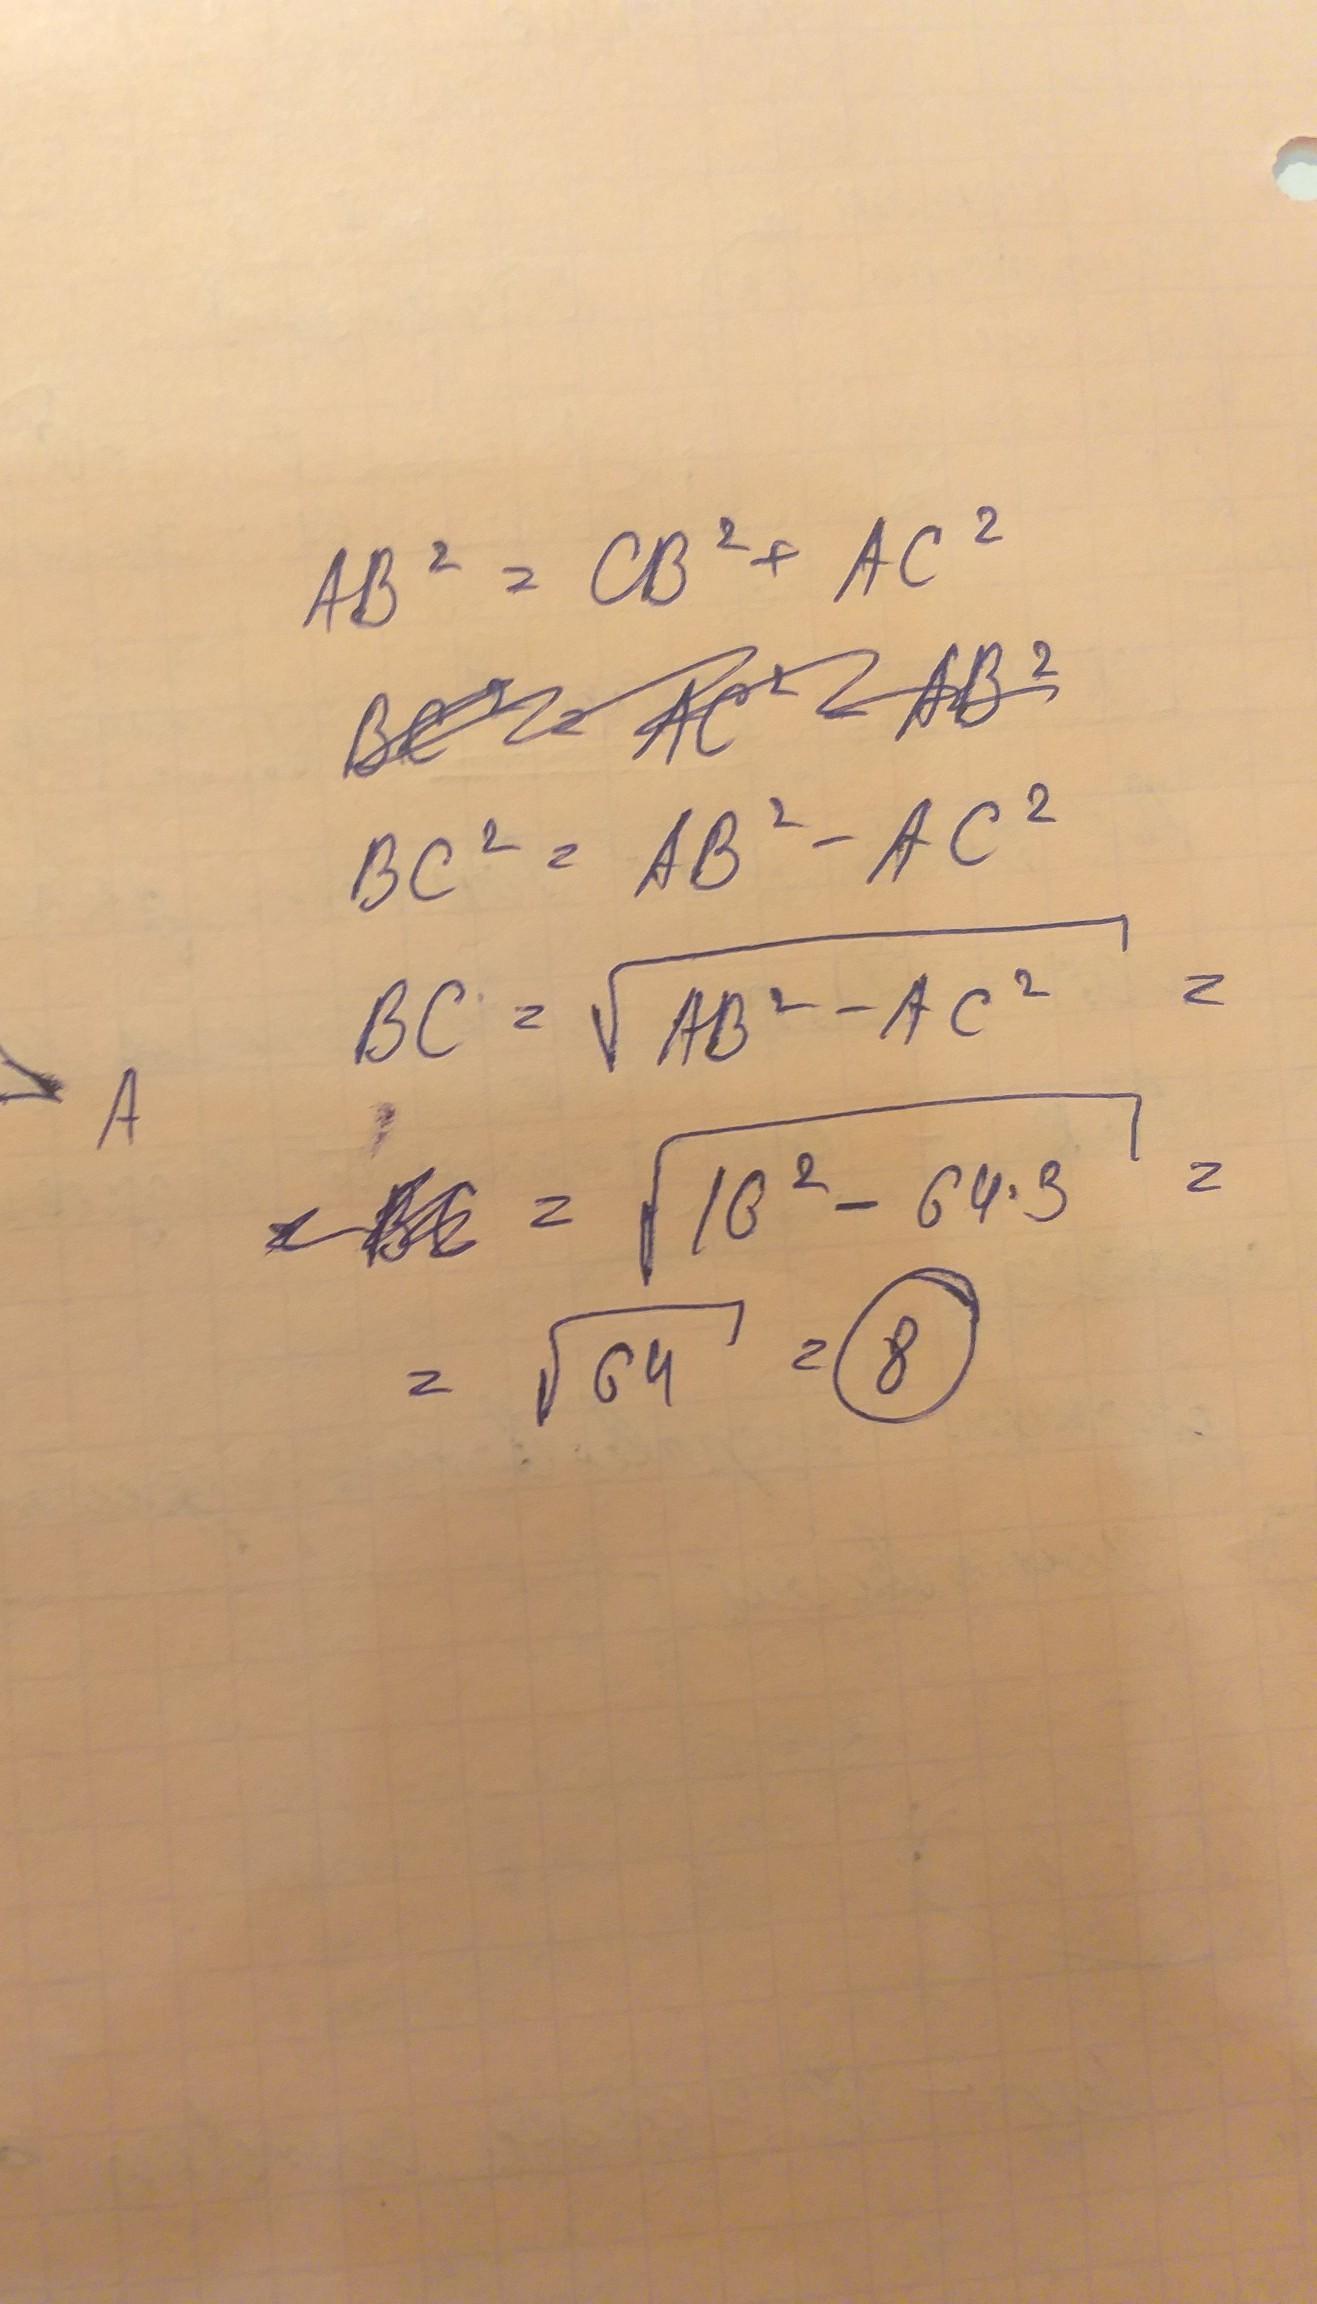 AB² = CB² + AC²
BC² = AC² - AB²
BC² = AB² - AC²
BC = √AB² - AC² =
A
BC = √16² - 64·3 =
= √64 = 8